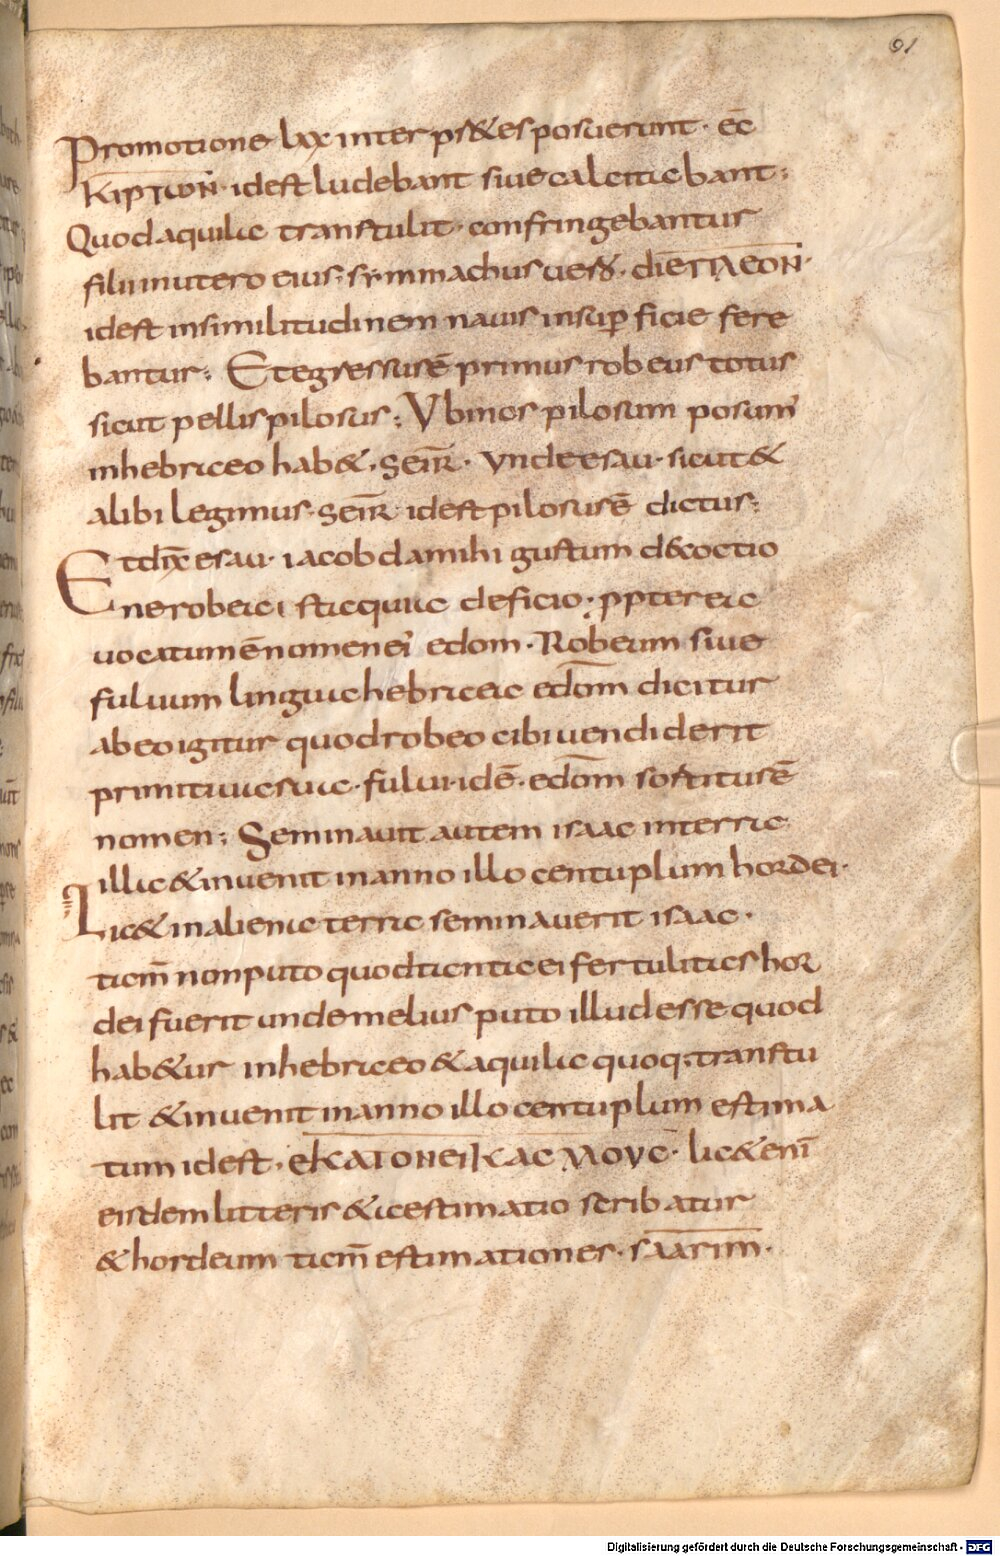 61
Promotione lxx interpr&es posuerunt · ēc
KIPTωN̄ · idest ludebant siue calcitrabant :
Quod aquila transtulit · confringebantur
filii in utero eius · symmachus uero · dIEΠΛEON ·
idest in similitudinem nauis in sup ficie fere
bantur : Et egressus ē primus robeus totus
sicut pellis pilosus : Vbi nos pilosum posuim̄
in hebraeo hab& · SEIR̄ · vnde esau · sicut &
alibi legimus · SEIR̄ idest pilosus ē dictus :
Et dix̄ esau · iacob da mihi gustum de coctio
ne robea ista quia deficio · ppterea
uocatum ē nomen ei edom · Robeum siue
fuluum lingua hebraea edōm dicitur
ab eo igitur quod robeo cibi uendiderit
primitiua sua · fului · id ē · edōm sortitus ē
nomen : Seminauit autem isaac in terra
illa & inuenit in anno illo centuplum hordei ·
Lic& in aliena terra seminauerit isaac ·
tam̄ non puto quod tanta ei fertilitas hor
dei fuerit unde melius puto illud esse quod
hab&ur in hebraeo & aquila quoq; transtu
lit & inuenit in anno illo centuplum estima
tum idest · eKATONEIKACMOYC · lic& enī
eisdem litteris & aestimatio scribatur
& hordeum tam̄ estimationes · sAArim ·
Digitalisierung gefördert durch die Deutsche Forschungsgemeinschaft · DFG